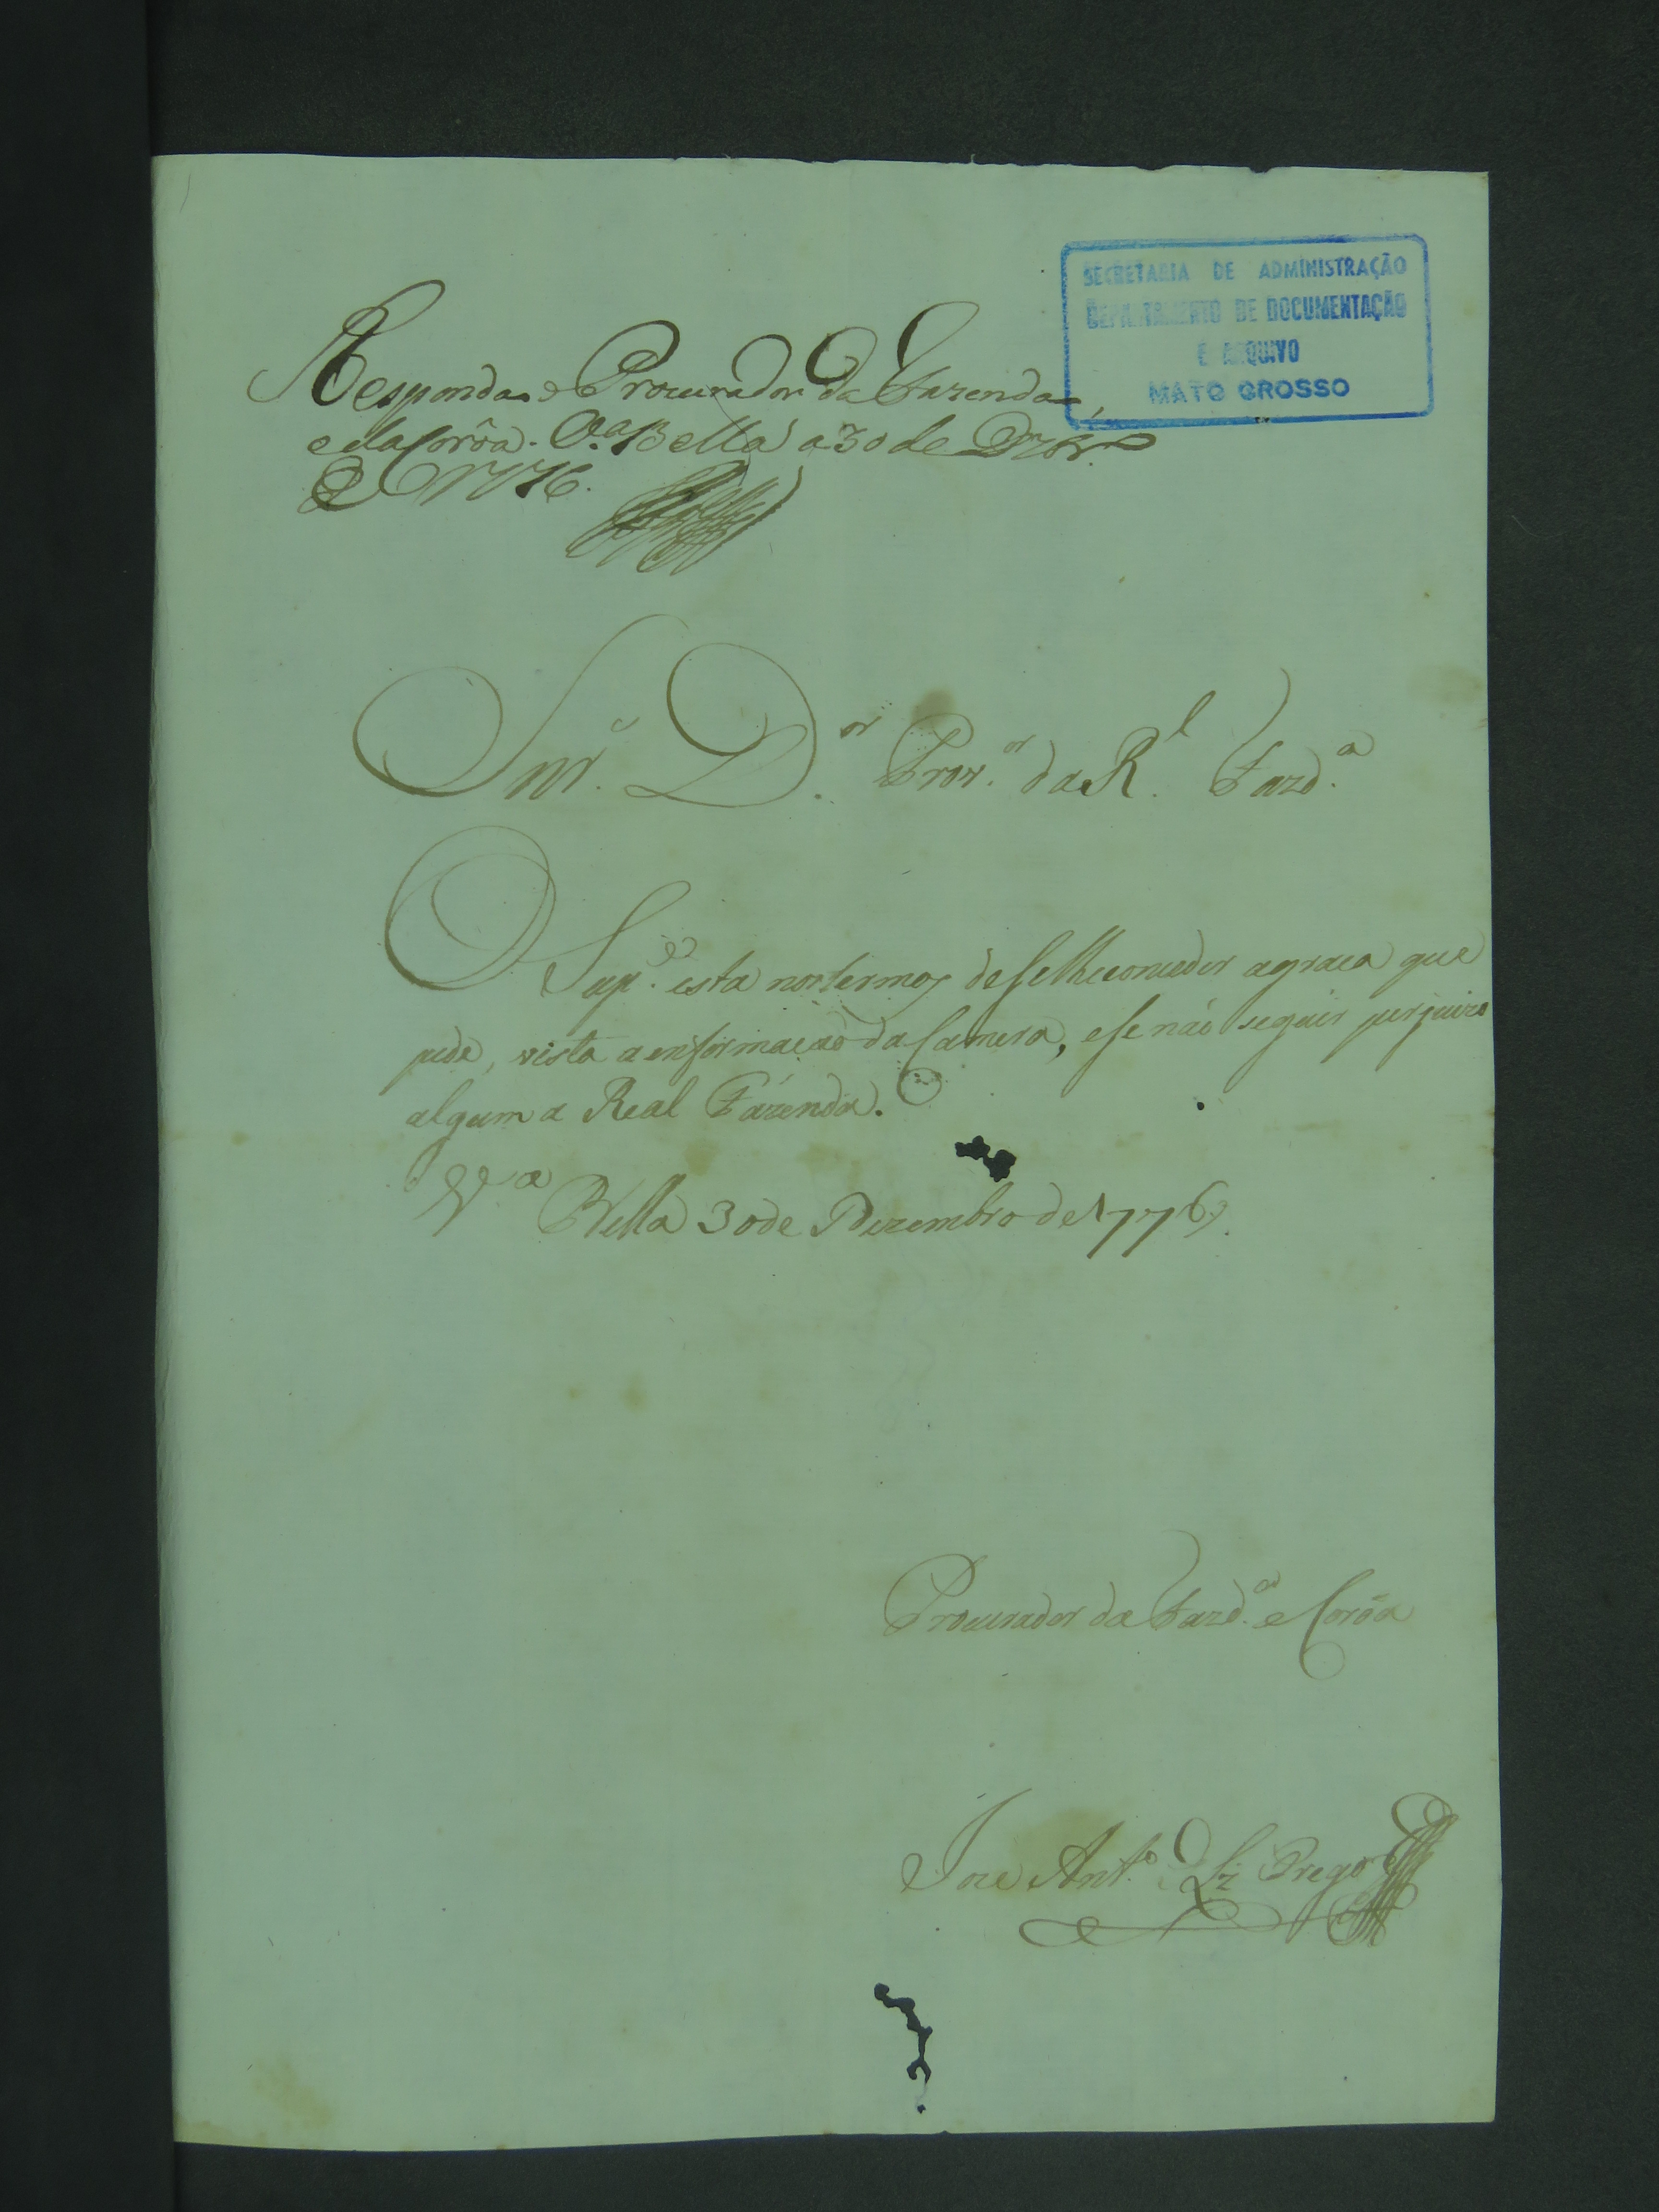 SECRETARIA DE ADMINISTRAÇÃO
DEPARTAMENTO DE DOCUMENTAÇÃO
E ARQUIVO
MATO GROSSO
Responda o Procurador da Fazenda,
e da Corôa. Va. Bella a 30 de Dezbro.
de 1776.
Snr. D.or Prov.or da R.l Fazd.a
O Sup.e esta nos termos de se lhe conceder a graca que
pede, vista a enformacao da Camera, e se não seguir perjuizo
algum a Real Fazenda.
V.a Bella 30 de Dezembro de 1776
Procurador da Fazd.a e Corôa
Joze Ant.o Prego